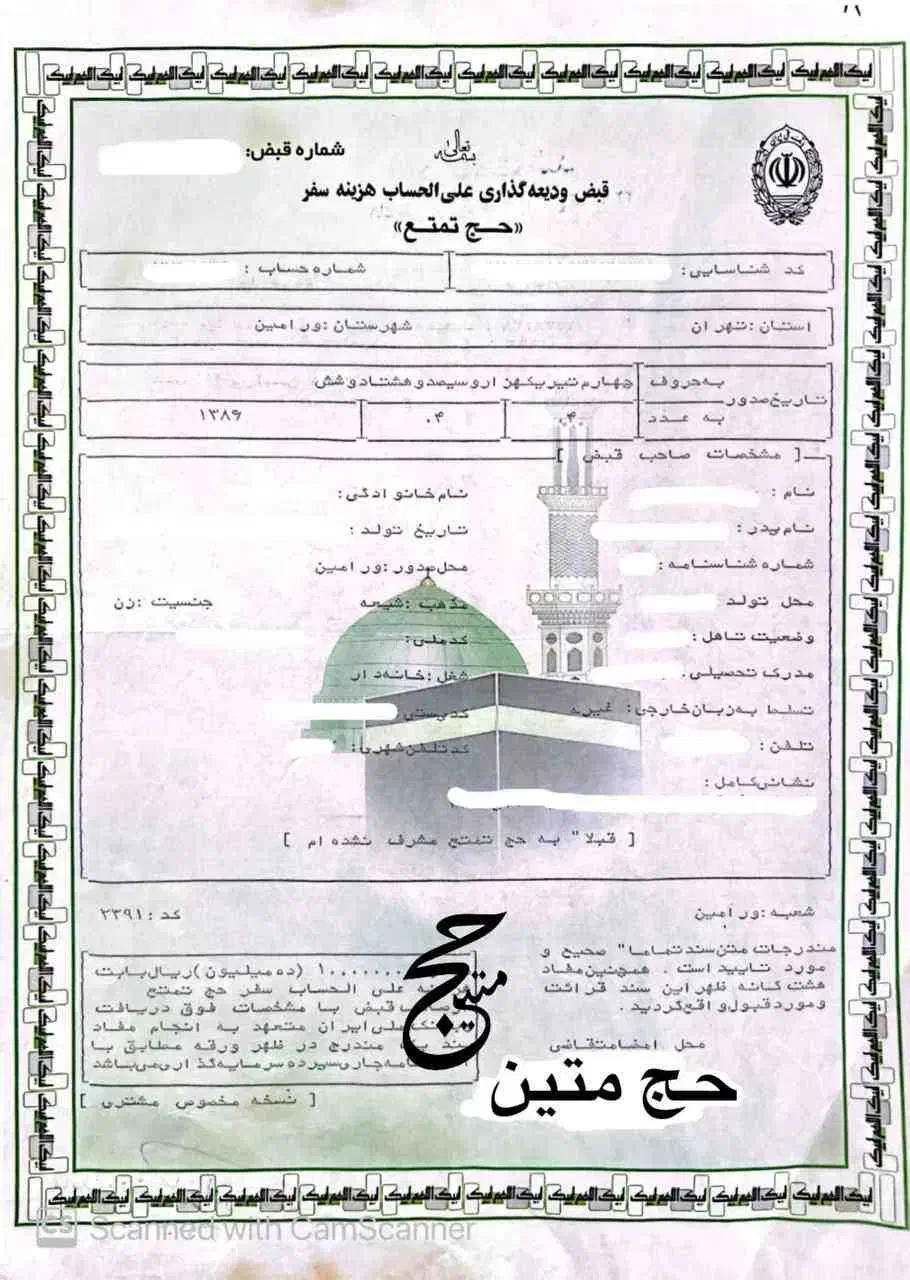 ۱۹
لبیک اللهم لبیک
بسمه تعالی
شماره قبض:
قبض ودیعه گذاری علی الحساب هزینه سفر
«حج تمتع»
کد شناسایی:
شماره حساب :
استان :تهران
شهرستان :ورامین
تاریخ صدور
به حروف
چهارم تیر یکهزار و سیصد و هشتاد و شش
به عدد
۰۴
۰۴
۱۳۸۶
[ مشخصات صاحب قبض ]
نام :
نام خانوادگی:
نام پدر :
تاریخ تولد :
شماره شناسنامه :
محل صدور :ورامین
محل تولد
مذهب :شیعه
جنسیت :زن
وضعیت تاهل :
کدملی:
مدرک تحصیلی.
شغل :خانه دار
تسلط به زبان خارجی: غیره
کدپستی
تلفن :
کد تلفن شهری:
نشانی کامل :
[ قبلا" به حج تمتع مشرف نشده ام ]
شعبه :ورامین
کد :۲۳۹۱
مندرجات متن سند تماما" صحیح و
مورد تایید است . همچنین مفاد
هشت گانه ظهر این سند قرائت
و مورد قبول واقع گردید .
محل امضا متقاضی
(ده میلیون) ریال بابت
علی الحساب سفر حج تمتع
قبض با مشخصات فوق دریافت
ملی ایران متعهد به انجام مفاد
مندرج در ظهر ورقه مطابق با
جاری سپرده سرمایه گذاری می باشد
[ نسخه مخصوص مشتری ]
حج
متین
حج متین
CS Scanned with CamScanner